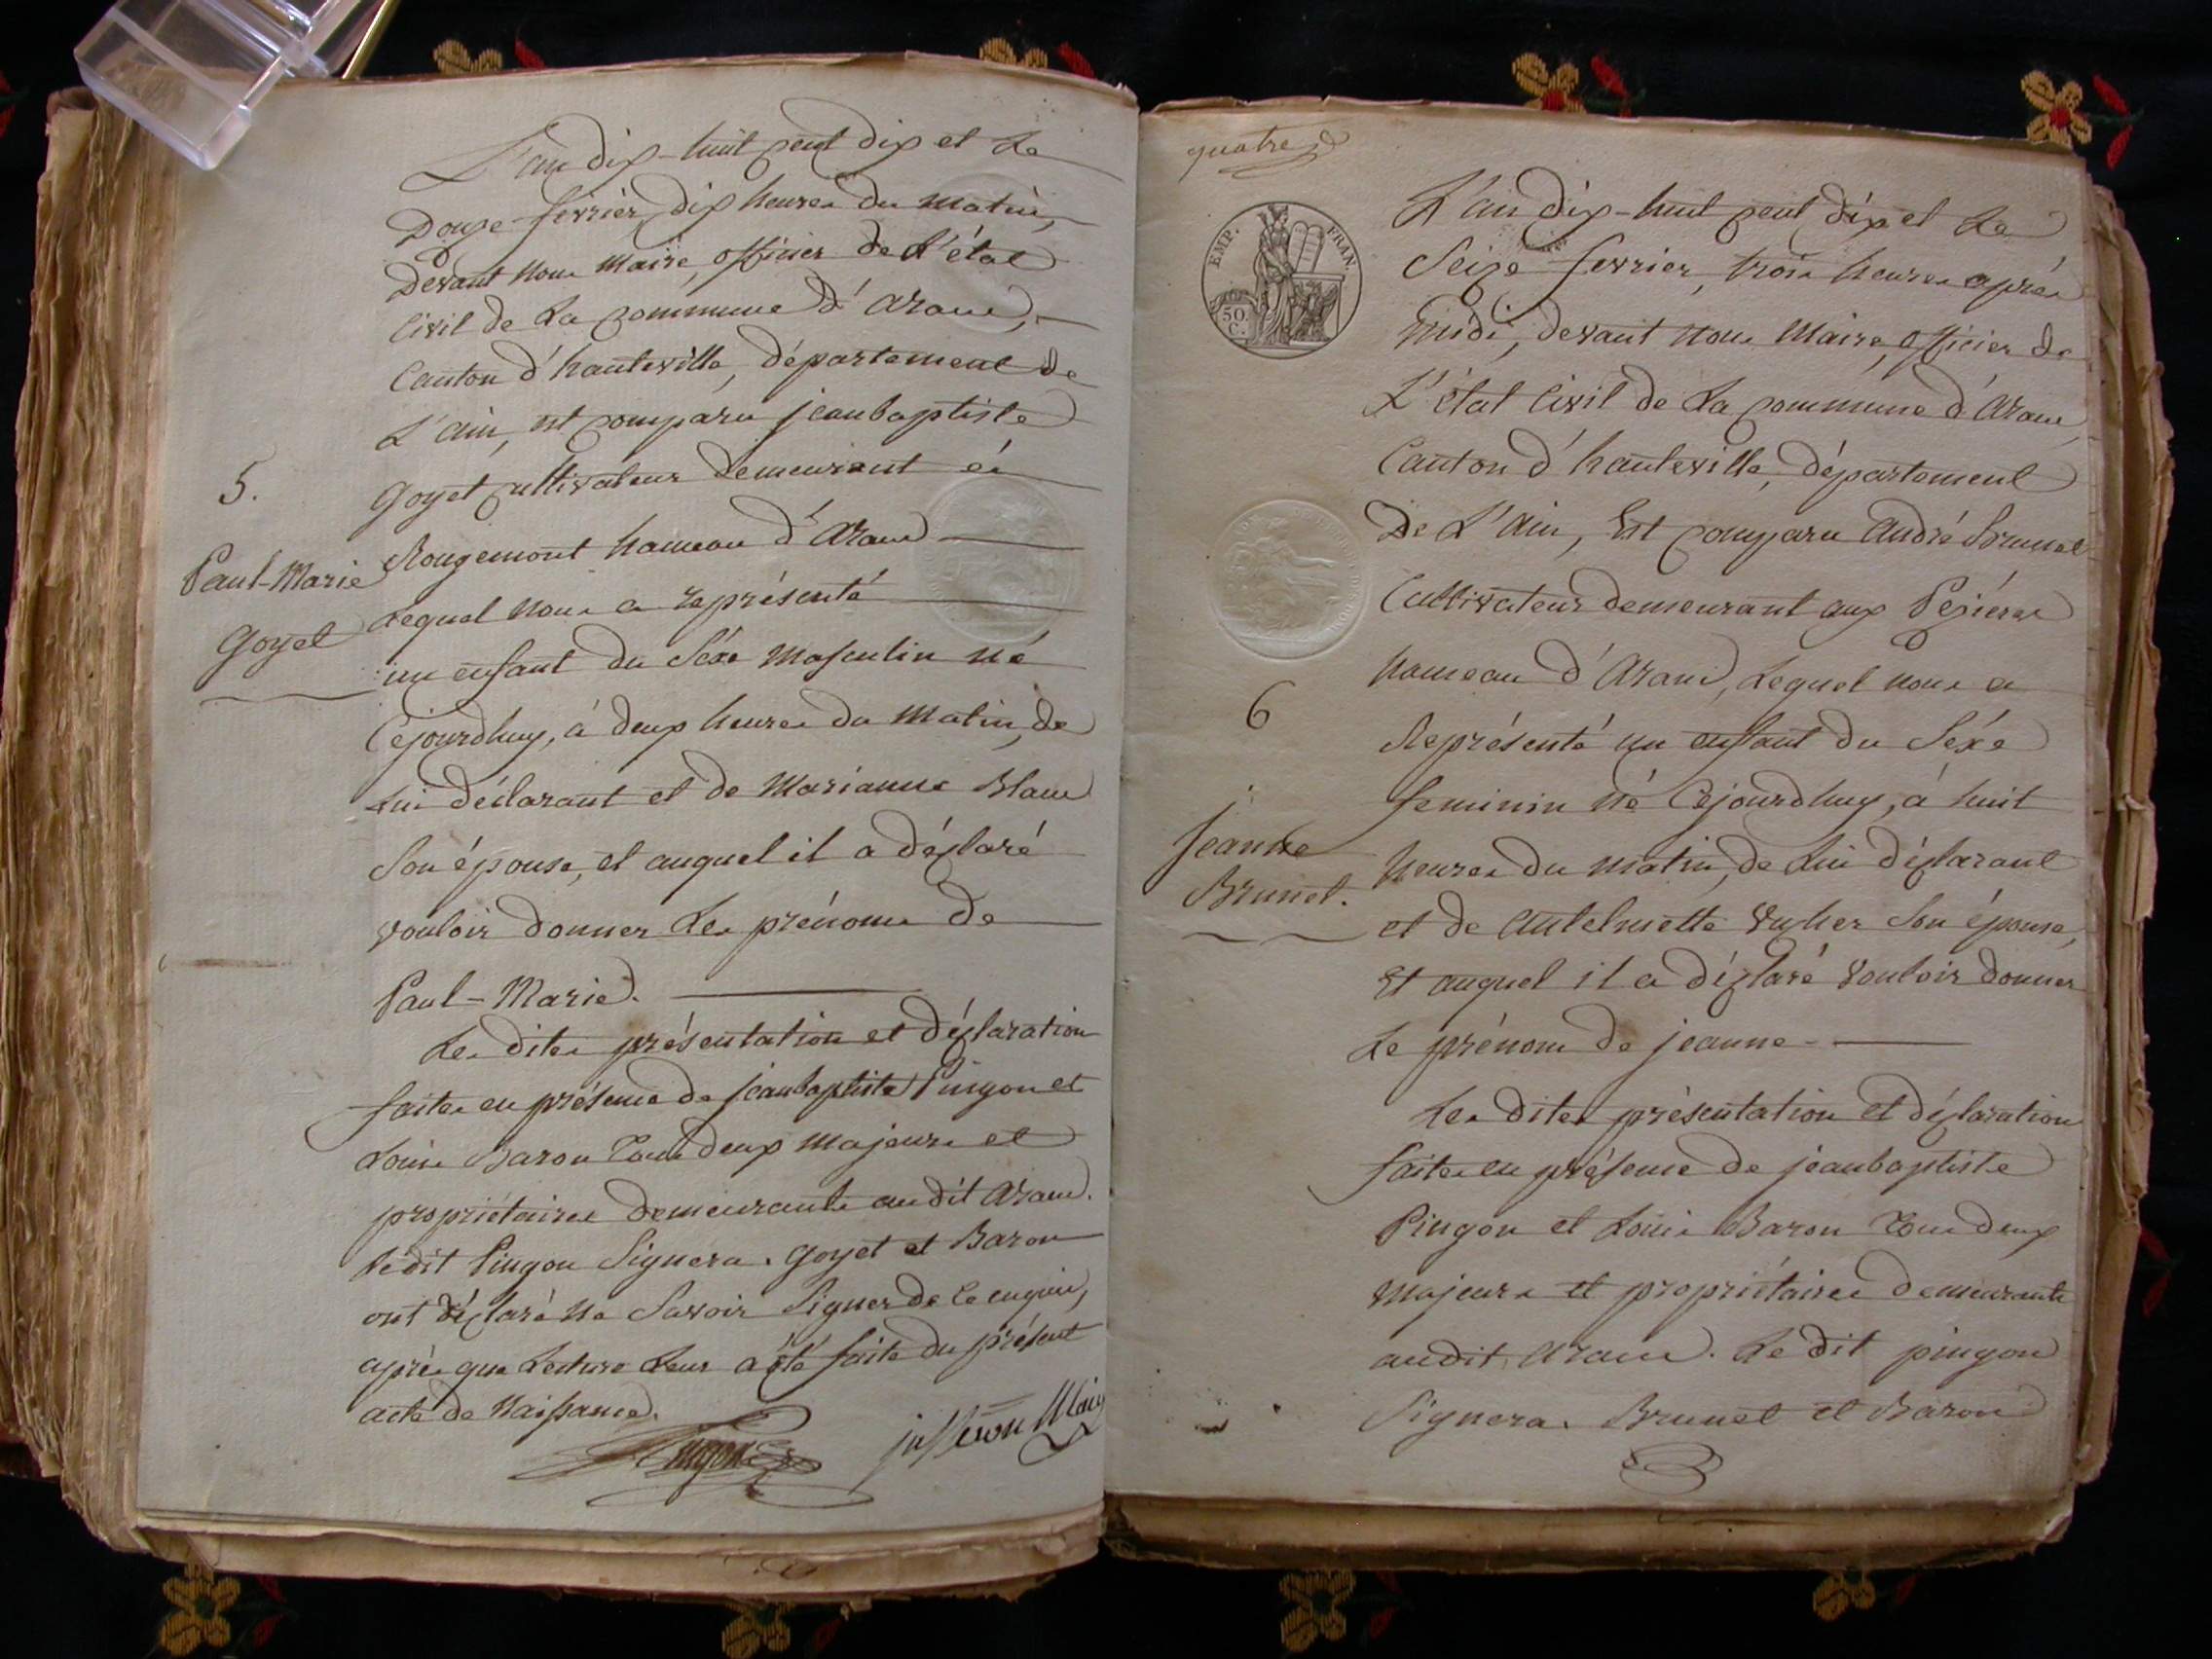 L'an dix-huit cent dix et le
Douze fevrier, dix heures du matin,
Devant nous maire, officier de L'état
Civil de La commune d'aranc,
Canton d'hauteville, département de
L'ain, est comparu jeanbaptiste
Goyet cultivateur demeurant à
Rougemont hameau d'aranc
Lequel nous a représenté
un enfant du Séxe masculin né
Cejourdhuy, à deux heures du matin, de
Lui déclarant et de marianne Blanc
Son épouse, et auquel il a déclaré
vouloir donner Les prénoms de
Paul-Marie.
Les dites présentation et déclaration
faites en présence de jeanbaptiste Pingon et
Louis Baron Tous deux majeurs et
propriétaires demeurants audit aranc.
Ledit Pingon Signera. Goyet et Baron
ont déclaré ne Savoir Signer de ce enquis,
après que Lecture Leur a été faite du présent
acte de Naissance.
Pingon
jusseron Maire
5.
Paul-Marie
Goyet
quatre
EMP. FRAN.
50
C.
L'an dix-huit cent dix et Le
Seize fevrier, trois heures après
midi, devant nous Maire, officier de
L'état Civil de La commune d'aranc,
Canton d'hauteville, département
De L'ain, Est comparu andré Brunet
Cultivateur demeurant aux Pézières
hameau d'aranc, Lequel nous a
Représenté un enfant du Séxe
feminin né Cejourdhuy, à huit
heures du matin, de Lui déclarant
et de antelmette Son épouse,
Et auquel il a déclaré vouloir donner
Le prénom de jeanne
Les dites présentation et déclaration
faites en présence de jeanbaptiste
Pingon et Louis Baron Tous deux
majeurs et propriétaires demeurants
audit aranc. Le dit pingon
Signera. Brunet et Baron
6
jeanne
Brunet.